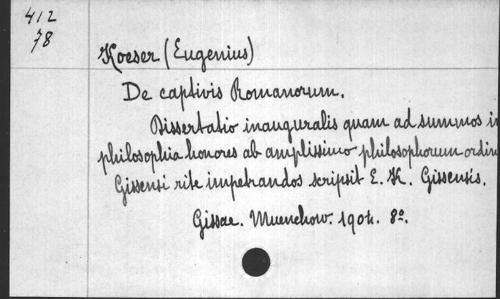 412
78
Koeser (Eugenius)
De captivis Romanorum.
Dissertatio inauguralis quam ad summos in
philosophia honores ab amplissimo philosophorum ordin
Gissensi rite impetrandos scripsit E. K. Gissensis.
Gissae. Muenchow. 1904. 8º.